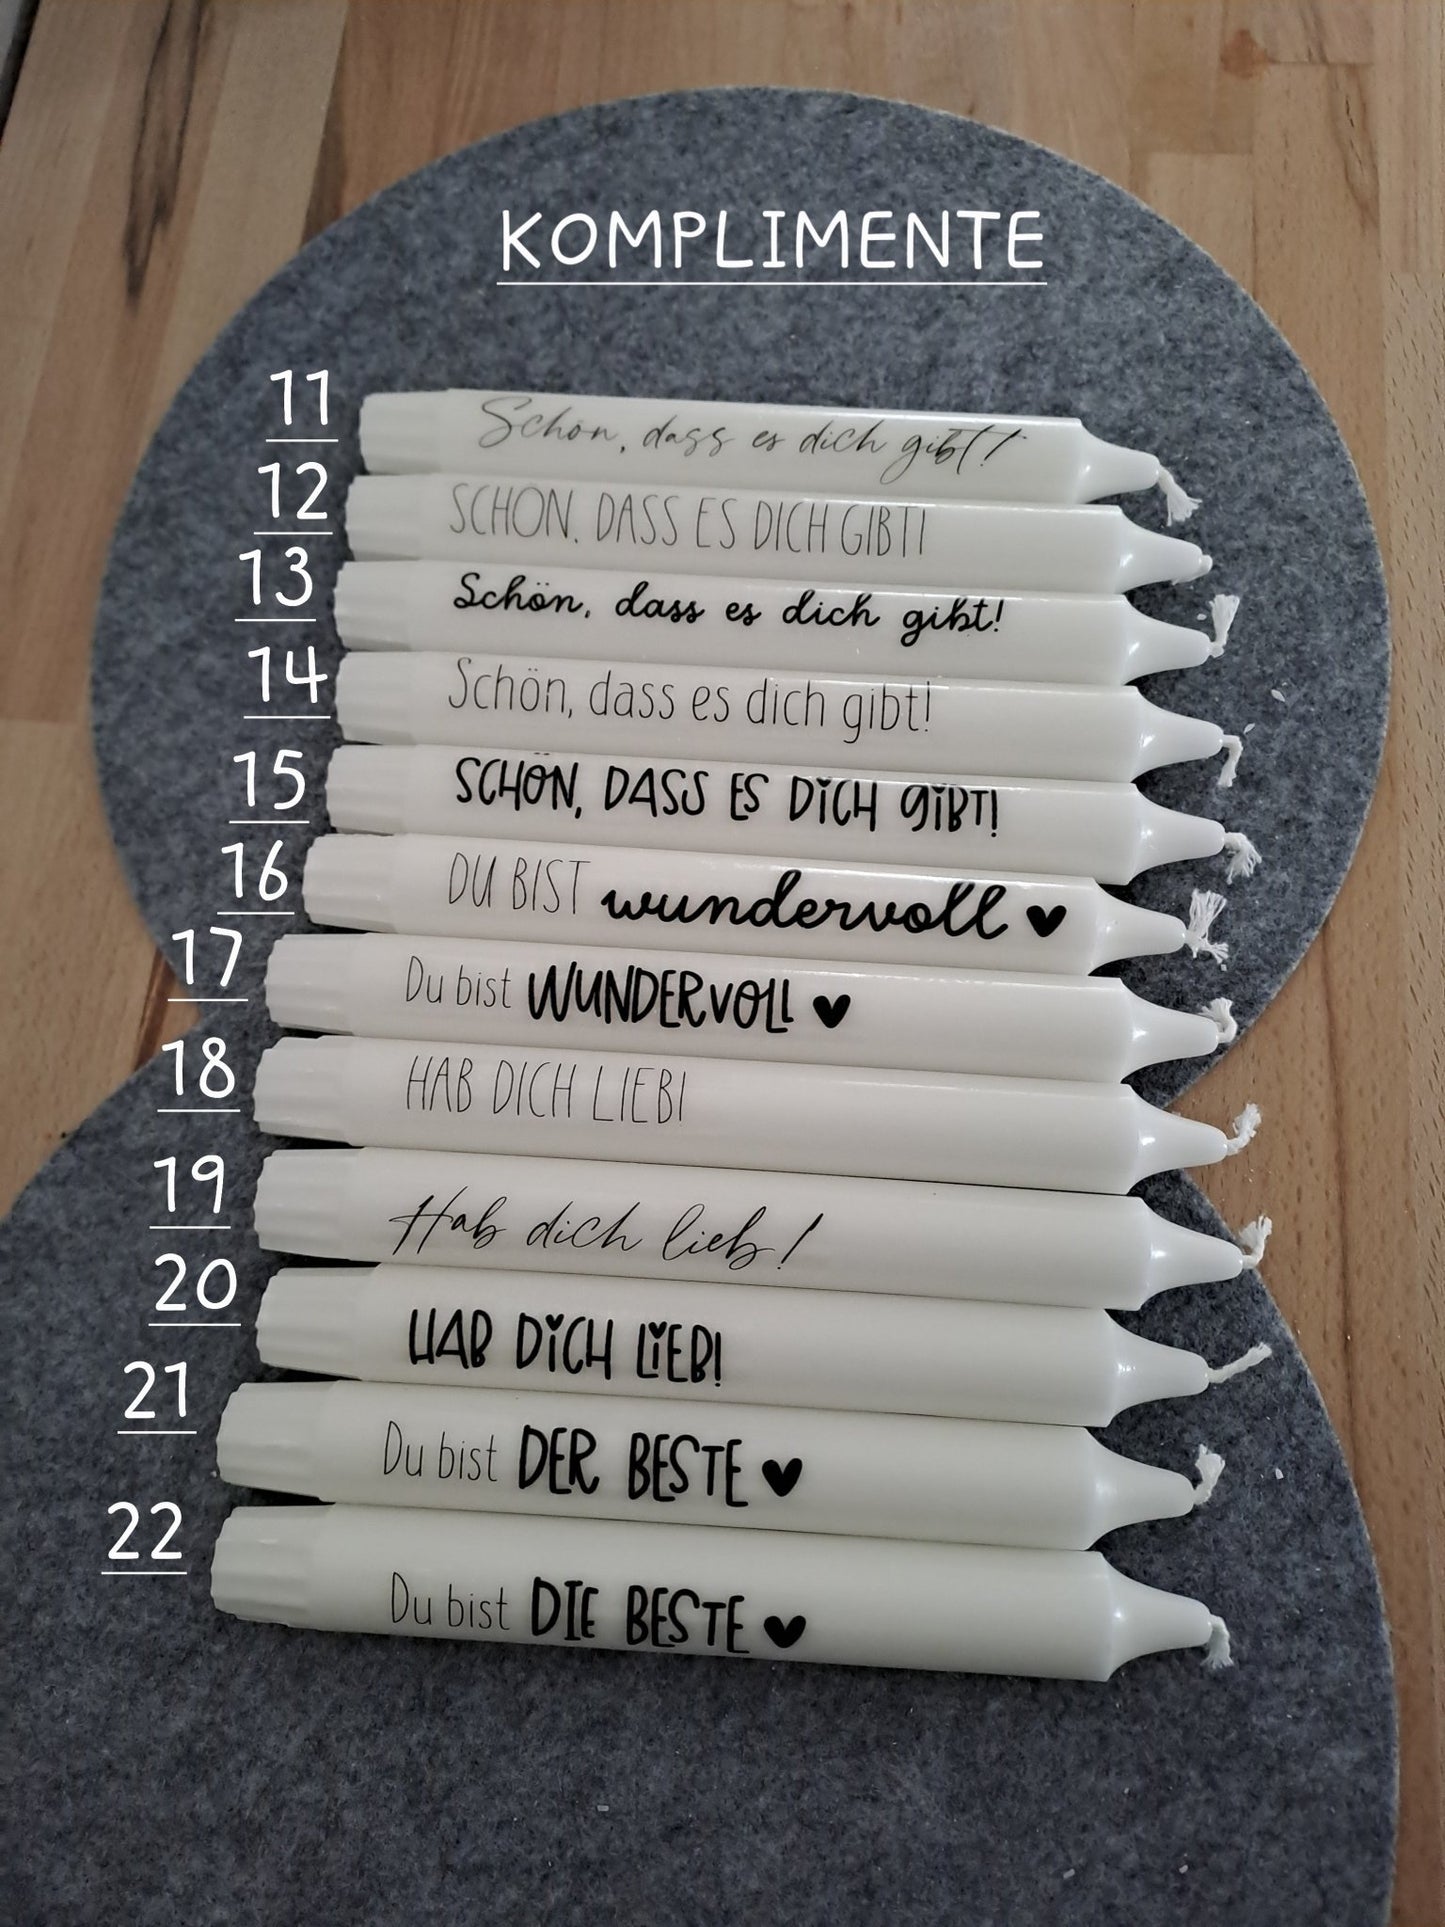 KOMPLIMENTE
11
Schön, dass es dich gibt!
12
SCHÖN, DASS ES DICH GIBT!
13
Schön, dass es dich gibt!
14
Schön, dass es dich gibt!
15
SCHÖN, DASS ES DICH GIBT!
16
DU BIST wundervoll ♥
17
Du bist WUNDERVOLL ♥
18
HAB DICH LIEB!
19
Hab dich lieb!
20
HAB DICH LIEB!
21
Du bist DER BESTE ♥
22
Du bist DIE BESTE ♥